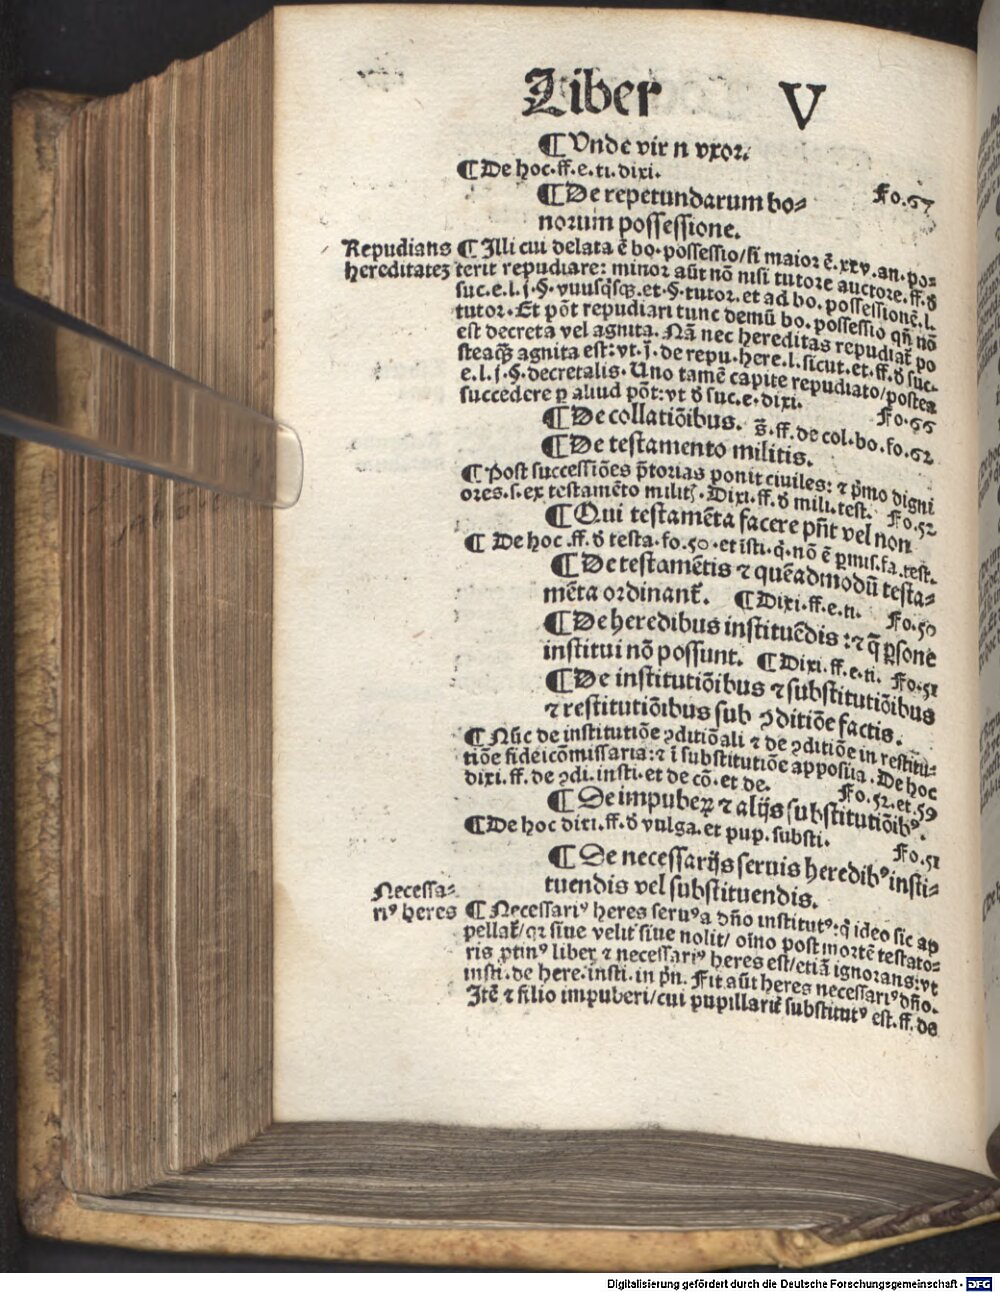 Liber V
¶ Vnde vir ⁊ vxor.
¶ De hoc. ff. e. ti. dixi.
Fo. 67
¶ De repetundarum bo⸗
norum possessione.
Repudians
hereditatez
¶ Illi cui delata ē bo. possessio/ si maior ē. xxv. an. po⸗
terit repudiare: minor aūt nō nisi tutore auctore. ff. ð
suc. e. l. j. §. vnusq̄sq̄. et. §. tutor. et ad bo. possessionē. l.
tutor. Et pōt repudiari tunc demū bo. possessio qñ nō
est decreta vel agnita. Nā nec hereditas repudiat̄ po
steaq̄ agnita est: vt. j. de repu. here. l. sicut. et. ff. ð suc.
e. l. j. §. decretalis. Uno tamē capite repudiato/ postea
succedere p aliud pōt: vt ð suc. e. dixi.
Fo. 66
¶ De collatiōibus. s̄. ff. de col. bo. fo. 62
¶ De testamento militis.
¶ Post successiōes p̄torias ponit ciuiles: ⁊ p̄mo digni
ores. s. ex testamēto milit. Dixi. ff. ð mili. test. Fo. 52
¶ Qui testamēta facere pn̄t vel non
¶ De hoc. ff. ð testa. fo. 50. et isti. q̄. nō ē p̄mis. fa. test.
¶ De testamētis ⁊ quēadmodū testa⸗
mēta ordinant̄. ¶ Dixi. ff. e. ti. Fo. 50
¶ De heredibus instituēdis: ⁊ q̄ p̄sone
institui nō possunt. ¶ Dixi. ff. e. ti. Fo. 51
¶ De institutiōibus ⁊ substitutiōibus
⁊ restitutiōibus sub ꝯditiōe factis.
¶ Nūc de institutiōe ꝯditiōali ⁊ de ꝯditiōe in restitu⸗
tiōe fideicōmissaria: ⁊ ī substitutiōe apposita. De hoc
dixi. ff. de ꝯdi. insti. et de cō. et de. Fo. 52. et. 59
¶ De impubeꝝ ⁊ alijs substitutiōibꝰ.
¶ De hoc dixi. ff. ð vulga. et pup. substi. Fo. 51
¶ De necessarijs seruis heredibꝰ insti⸗
tuendis vel substituendis.
Necessa⸗
riꝰ heres
¶ Necessariꝰ heres seruꝰ a dño institutꝰ: q̄ ideo sic ap
pellat̄/ qꝛ siue velit siue nolit/ oīno post mortē testato⸗
ris ptinꝰ liber ⁊ necessariꝰ heres est/ etiā ignorans: vt
insti. de here. insti. in pn̄. Fit aūt heres necessariꝰ dño.
Itē ⁊ filio impuberi/ cui pupillarit̄ substitutꝰ est. ff. de
Digitalisierung gefördert durch die Deutsche Forschungsgemeinschaft - DFG